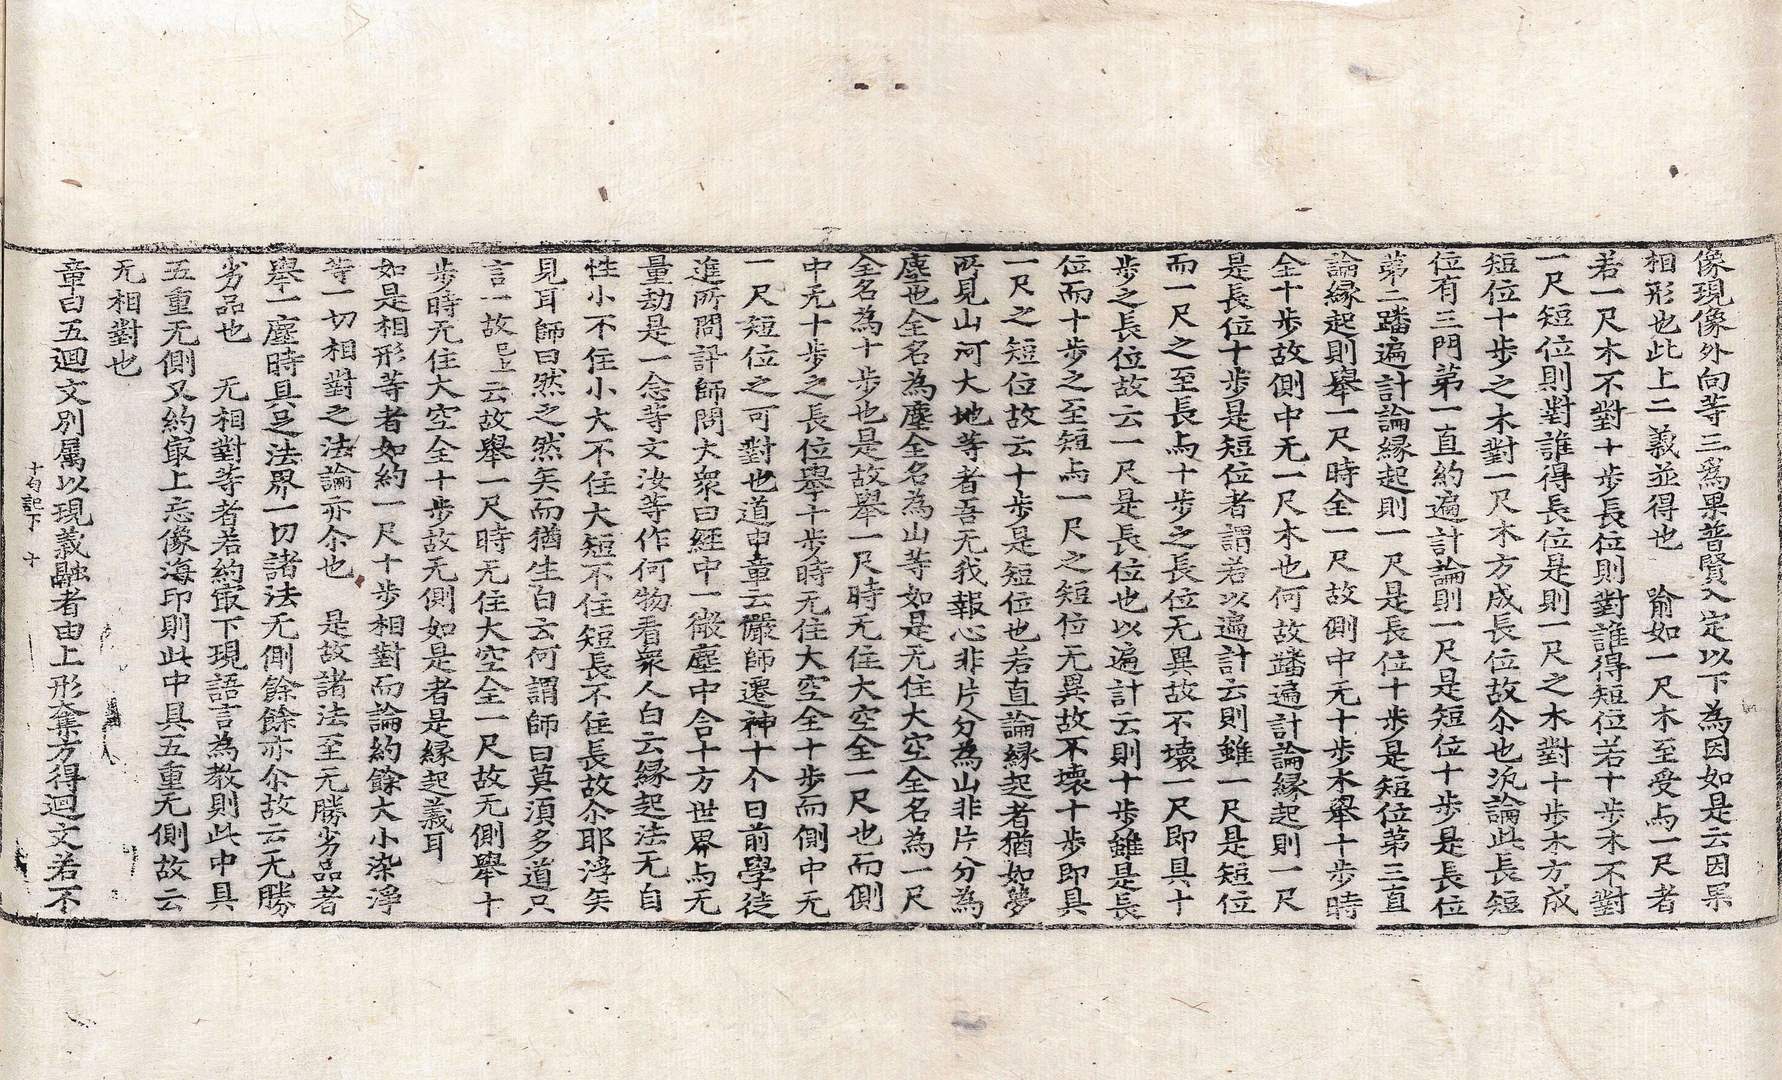 像現像外向等三爲果普賢入定以下為因如是云因果
相形也此上二義並得也　喻如一尺木至受与一尺者
若一尺木不對十步長位則對誰得短位若十步木不對
一尺短位則對誰得長位是則一尺之木對十步木方成
短位十步之木對一尺木方成長位故尒也汎論此長短
位有三門第一直約遍計論則一尺是短位十步是長位
第二躇遍計論緣起則一尺是長位十步是短位第三直
論緣起則舉一尺時全一尺故側中无十步木舉十步時
全十步故側中无一尺木也何故躇遍計論緣起則一尺
是長位十步是短位者謂若以遍計云則雖一尺是短位
而一尺之至長与十步之長位无異故不壞一尺即具十
步之長位故云一尺是長位也以遍計云則十步雖是長
位而十步之至短与一尺之短位无異故不壞十步即具
一尺之短位故云十步是短位也若直論緣起者猶如夢
所見山河大地等者吾无我報心非片分為山非片分為
塵也全名為塵全名為山等如是无住大空全名為一尺
全名為十步也是故舉一尺時无住大空全一尺也而側
中无十步之長位舉十步時无住大空全十步而側中无
一尺短位之可對也道申章云儼師遷神十个日前學徒
進所問訐師問大衆曰經中一微塵中含十方世界与无
量劫是一念等文汝等作何物看衆人白云緣起法无自
性小不住小大不住大短不住短長不住長故尒耶浮矣
見耳師曰然之然矣而猶生白云何謂師曰莫湏多道只
言一故是上云故舉一尺時无住大空全一尺故无側舉十
步時无住大空全十步故无側如是者是緣起義耳
如是相形等者如約一尺十步相對而論約餘大小染淨
等一切相對之法論亦尒也　是故諸法至无勝劣品者
舉一塵時具足法界一切諸法无側餘餘亦尒故云无勝
劣品也　无相對等者若約冣下現語言為教則此中具
五重无側又約冣上忘像海印則此中具五重无側故云
无相對也
章白五迴文別属以現義融者由上形奪方得迴文若不
十句記下　十